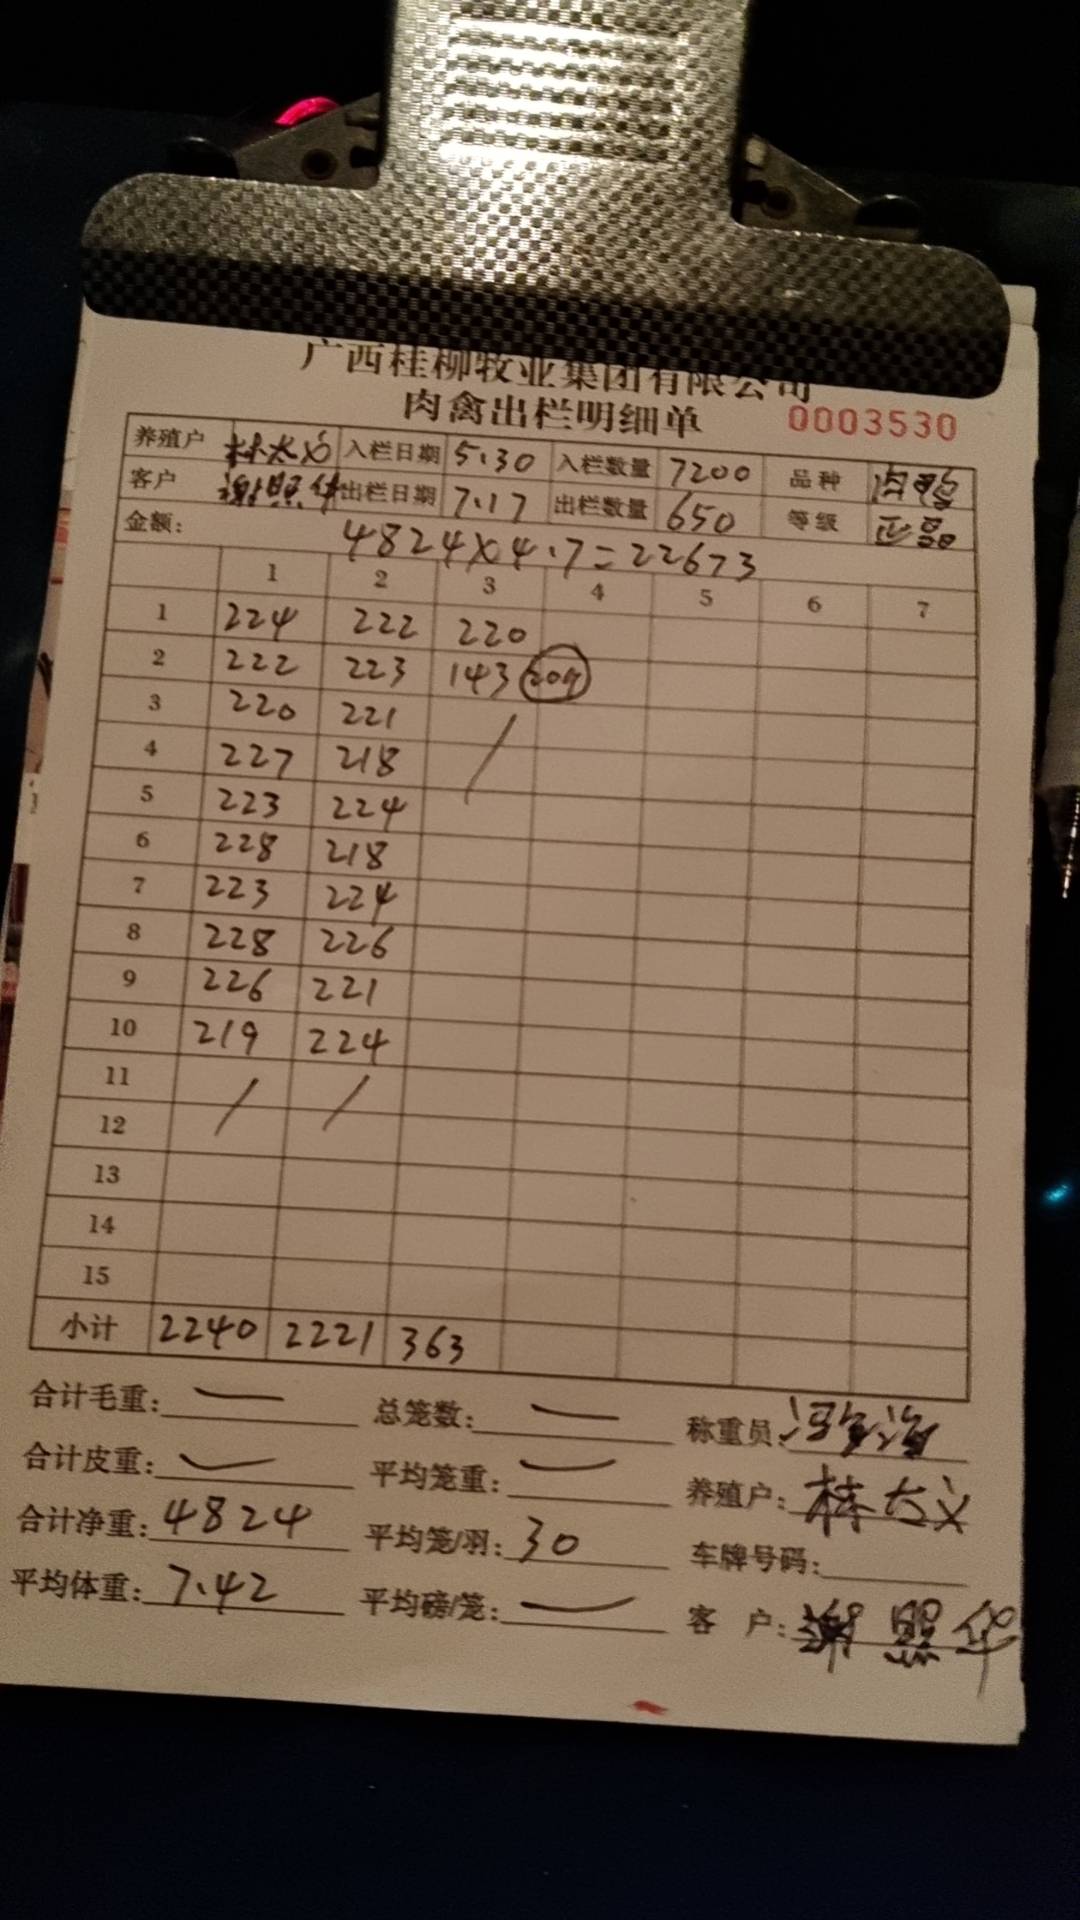 广西桂柳牧业集团有限公司
肉禽出栏明细单 0003530
养殖户 林太义 入栏日期 5.30 入栏数量 7200 品种 肉鸭
客户 谢照华 出栏日期 7.17 出栏数量 650 等级 正品
金额: 4824×4.7=22673
1 2 3 4 5 6 7
1 224 222 220
2 222 223 143
3 220 221 /
4 227 218
5 223 224
6 228 218
7 223 224
8 228 226
9 226 221
10 219 224
11 / /
12
13
14
15
小计 2240 2221 363
合计毛重: — 总笼数: — 称重员:
合计皮重: — 平均笼重: — 养殖户: 林太义
合计净重: 4824 平均笼/羽: 30 车牌号码:
平均体重: 7.42 平均磅/笼: — 客 户: 谢照华